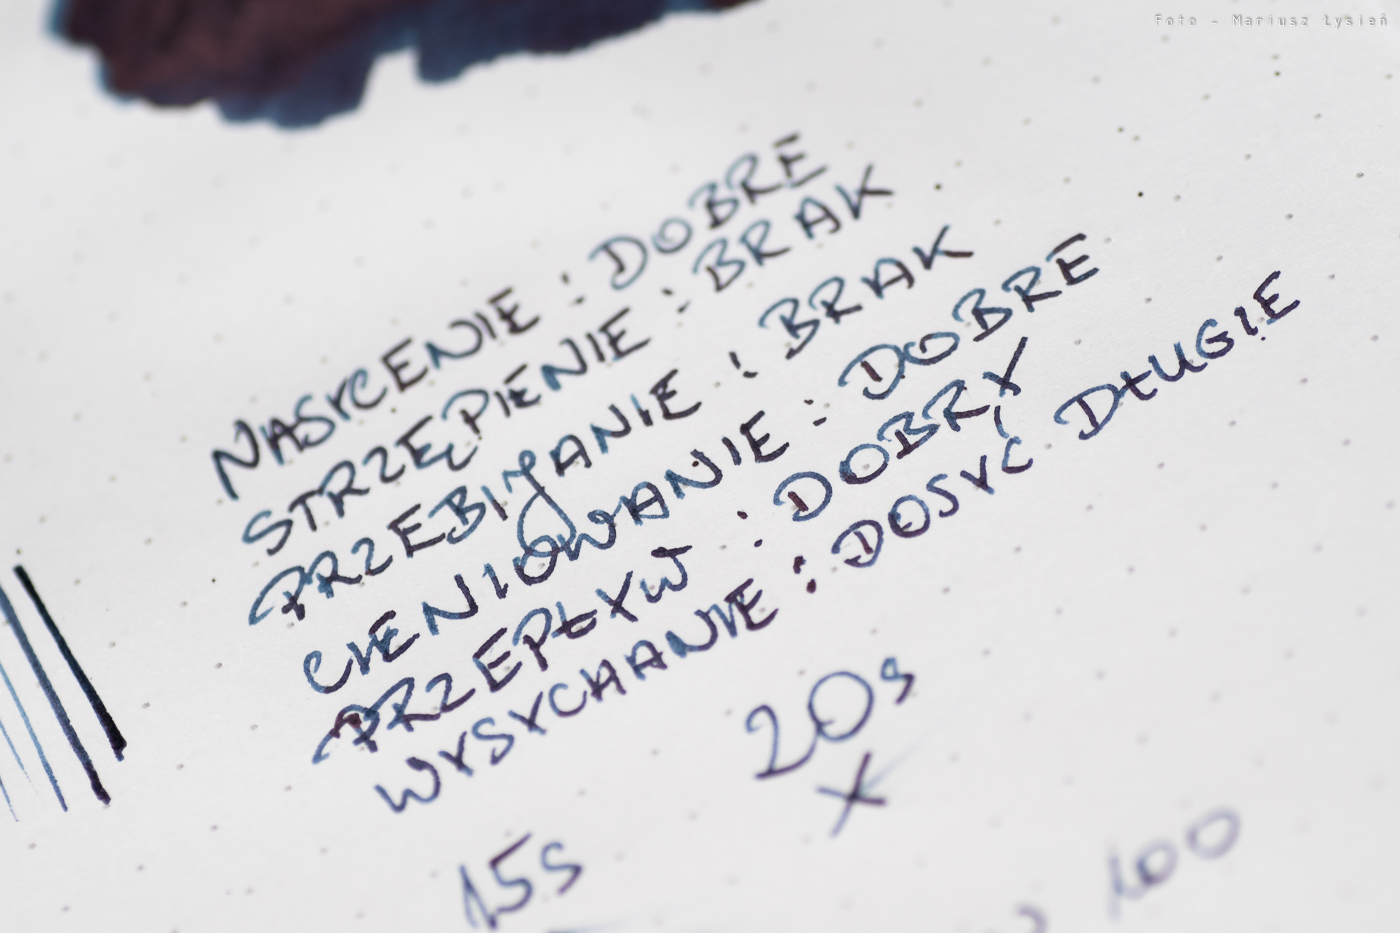 Foto - Mariusz Łysień
NASYCENIE : DOBRE
STRZĘPIENIE : BRAK
PRZEBIJANIE : BRAK
CIENIOWANIE : DOBRE
PRZEPŁYW : DOBRY
WYSYCHANIE : DOSYĆ DŁUGIE
20s
X
15s
100